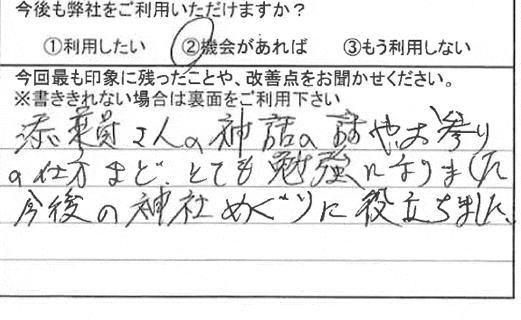 今後も弊社をご利用いただけますか？
①利用したい ②機会があれば ③もう利用しない
今回最も印象に残ったことや、改善点をお聞かせください。
※書ききれない場合は裏面をご利用下さい
添乗員さんの神話の話や、お参り
の仕方まど、とても勉強になりました
今後の神社めぐりに役立ちました。